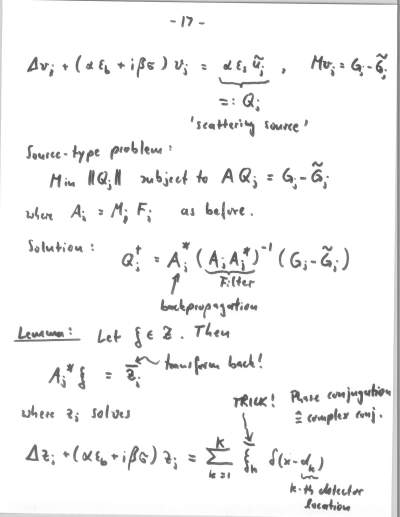 - 17 -
Δv_j + (α ε_b + i β σ) v_j = α ε_s ũ_j , M v_j = G_j - G̃_j
=: Q_j
'scattering source'
Source-type problem:
Min ||Q_j|| subject to A Q_j = G_j - G̃_j
where A_j = M_j F_j as before.
Solution: Q_j^† = A_j^* (A_j A_j^*)^{-1} (G_j - G̃_j)
Filter
backpropagation
Lemma: Let ξ ∈ Z. Then
A_j^* ξ = z̄_j transform back!
where z_j solves
TRICK! Phase conjugation
≙ complex conj.
Δz_j + (α ε_b + i β σ) z_j = Σ_{k=1}^{K} ξ̄_k δ(x - d_k)
k-th detector
location